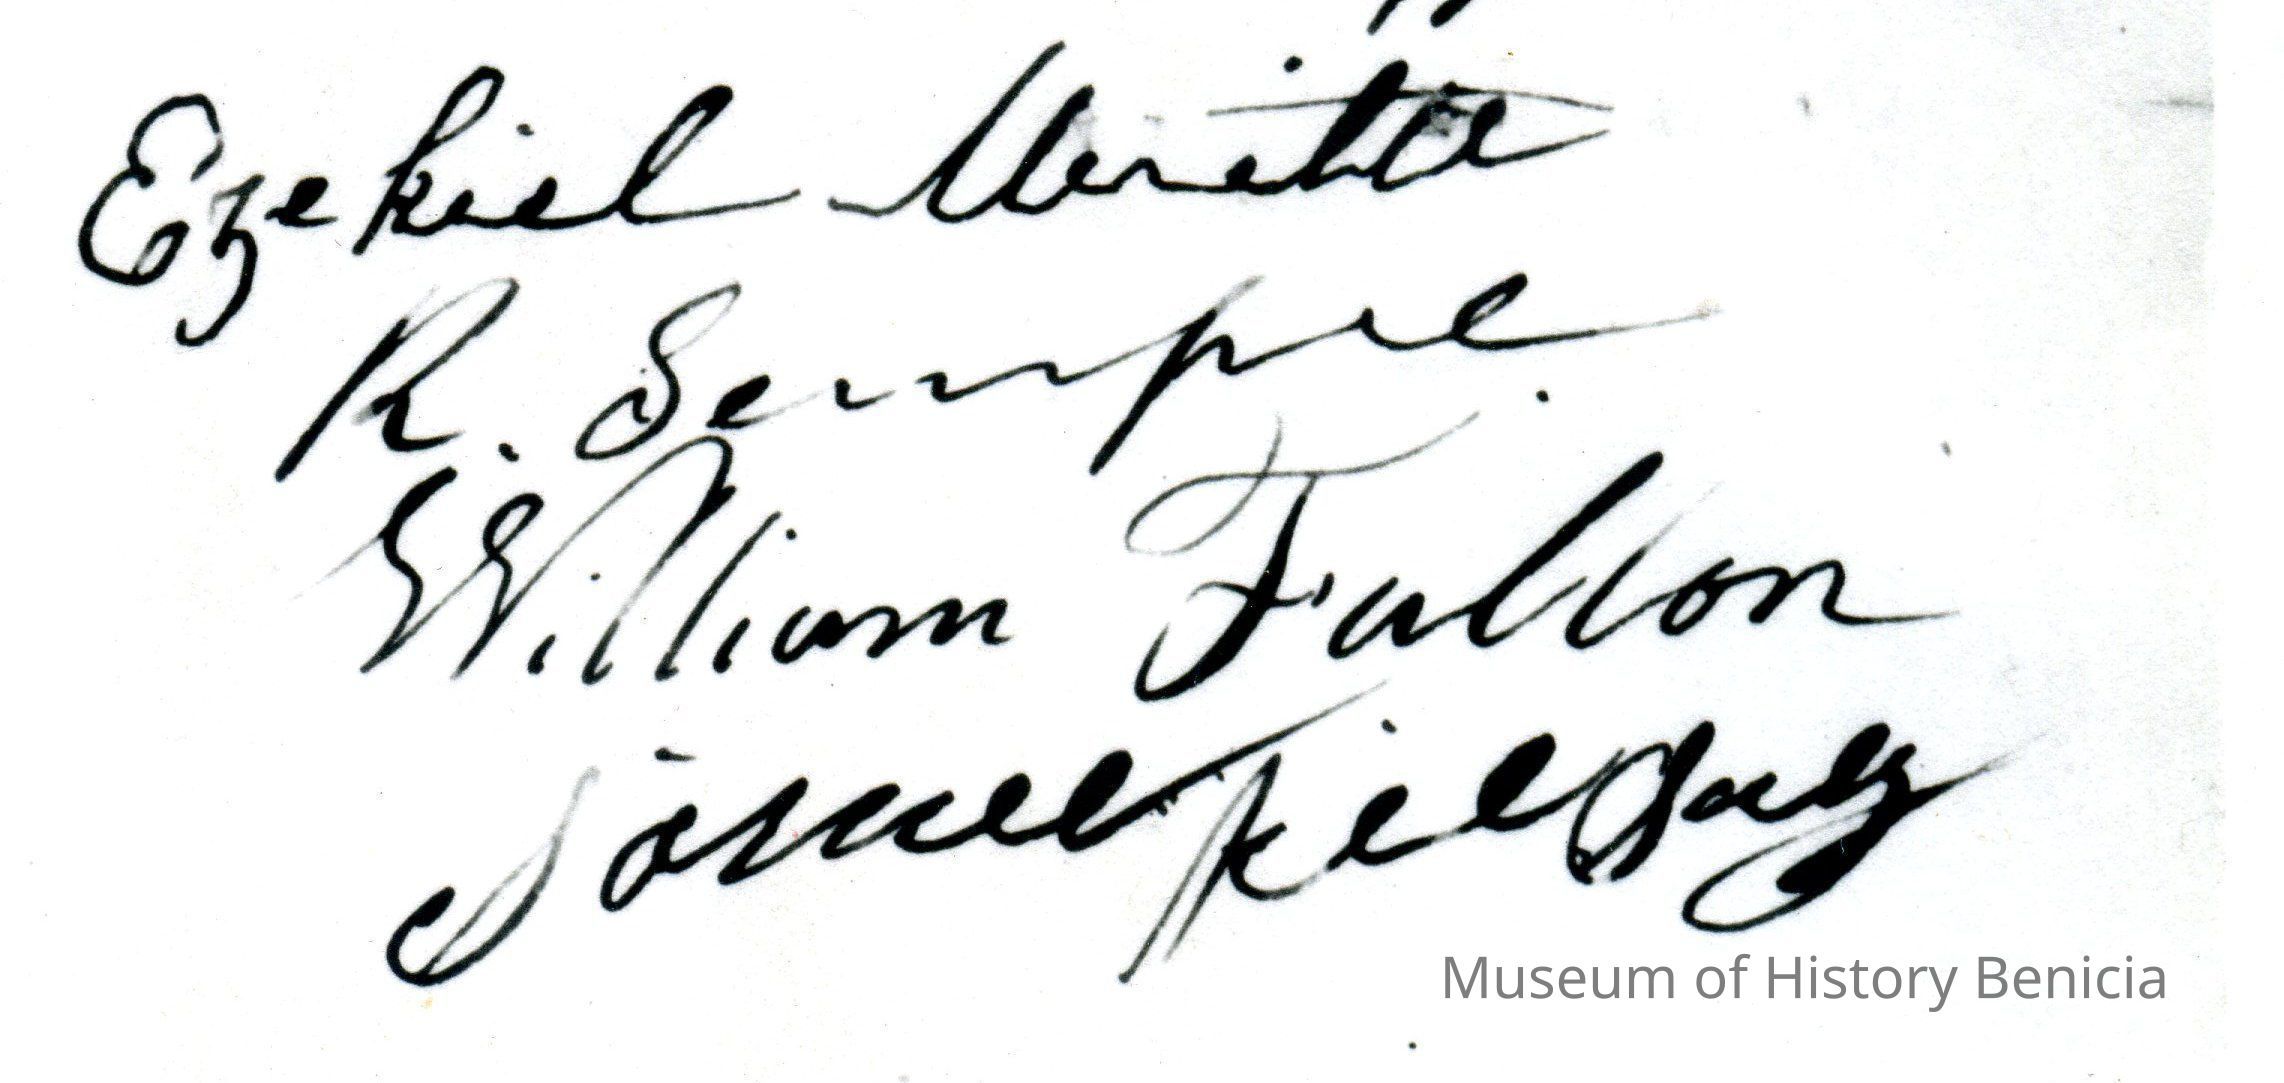 Ezekiel Merritt
R. Semple
William Fallon
Samuel Kelsey
Museum of History Benicia